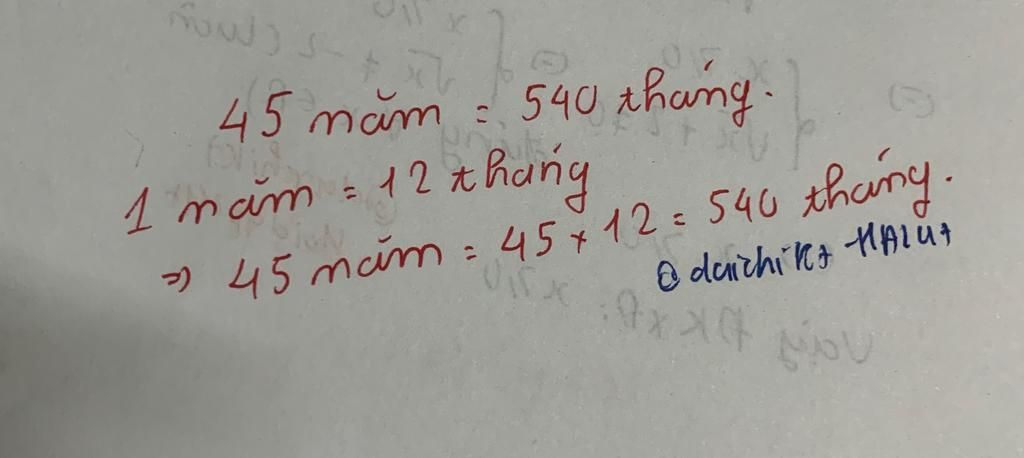 45 năm = 540 tháng.
1 năm = 12 tháng
=> 45 năm = 45 x 12 = 540 tháng.